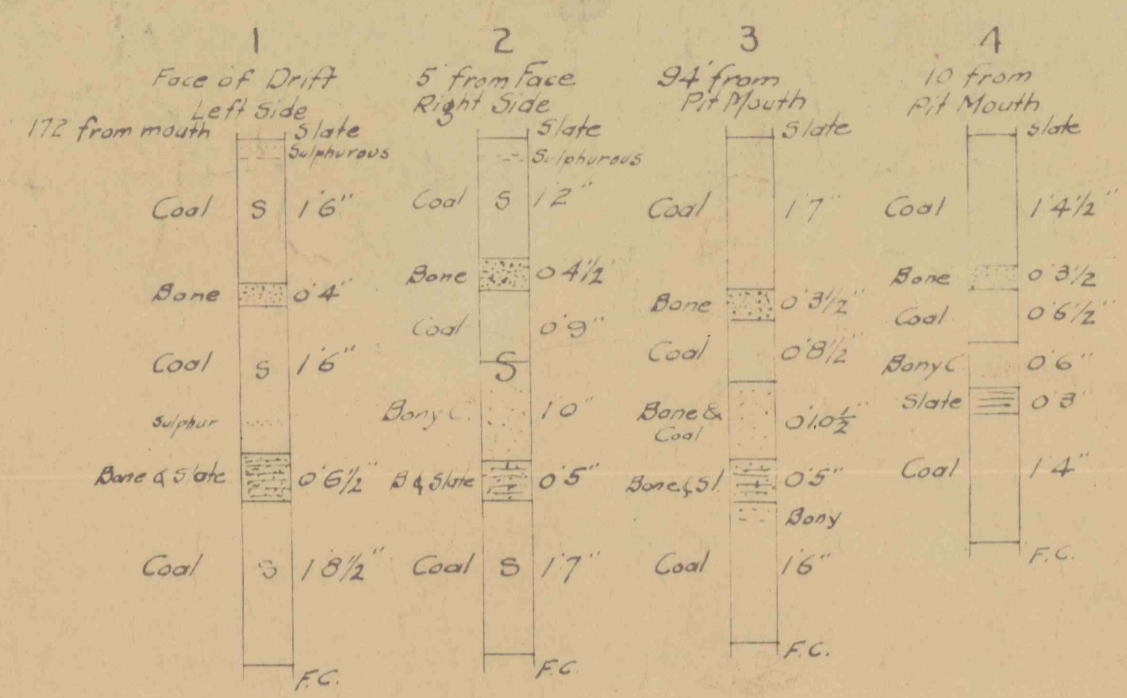 1
Face of Drift
Left Side
172 from mouth
Slate
Sulphurous
Coal S 1'6"
Bone 0'4"
Coal S 1'6"
Sulphur
Bone & Slate 0'6 1/2"
Coal S 1'8 1/2"
F.C.
2
5' from Face
Right Side
Slate
Sulphurous
Coal S 1'2"
Bone 0'4 1/2"
Coal 0'9"
S
Bony C. 1'0"
B & Slate 0'5"
Coal S 1'7"
F.C.
3
94' from
Pit Mouth
Slate
Coal 1'7"
Bone 0'3 1/2"
Coal 0'8 1/2"
Bone &
Coal 0'10 1/2"
Bone & Sl. 0'5"
Bony
Coal 1'6"
F.C.
4
10 from
Pit Mouth
Slate
Coal 1'4 1/2"
Bone 0'3 1/2"
Coal 0'6 1/2"
Bony C 0'6"
Slate 0'3"
Coal 1'4"
F.C.